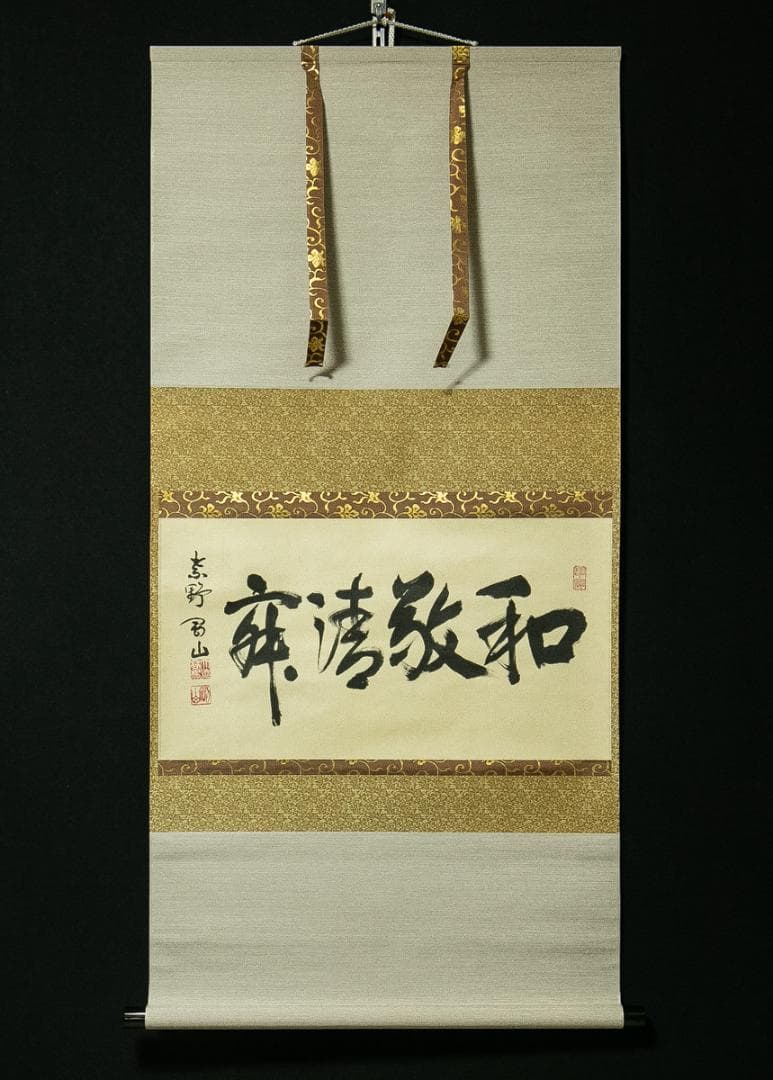 和敬清寂
紫野
山